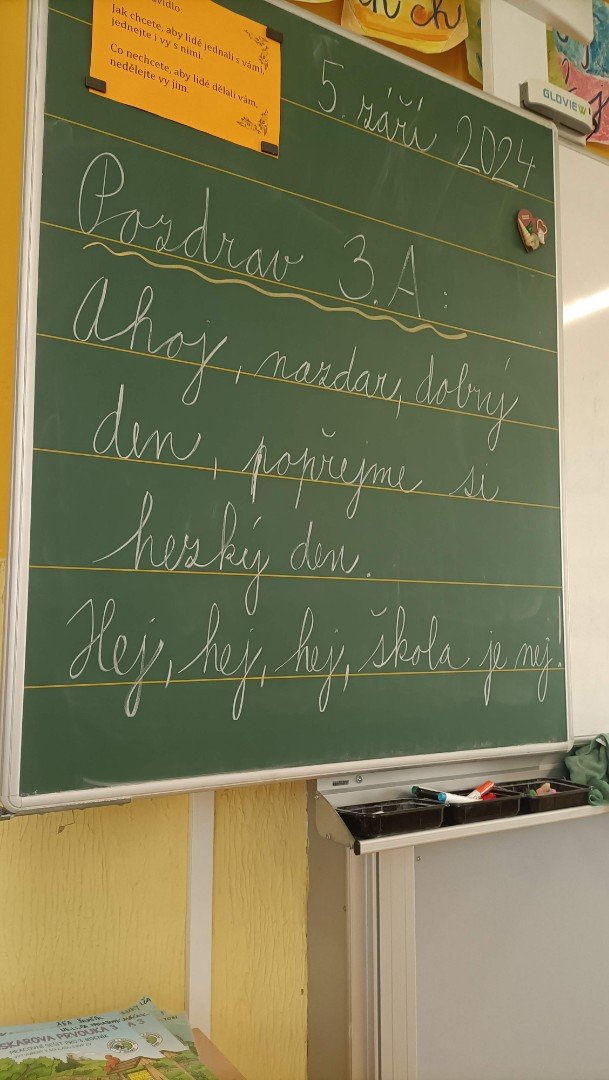 avidlo:
Jak chcete, aby lidé jednali s vámi,
jednejte i vy s nimi.
Co nechcete, aby lidé dělali vám,
nedělejte vy jim.
ch
GLOVIEW
5. září 2024
Pozdrav 3.A:
Ahoj, nazdar, dobrý
den, popřejme si
hezký den.
Hej, hej, hej, škola je nej.
SKAROVA PRVOUKA 3
PRACOVNÍ SEŠIT PRO 3. ROČNÍK